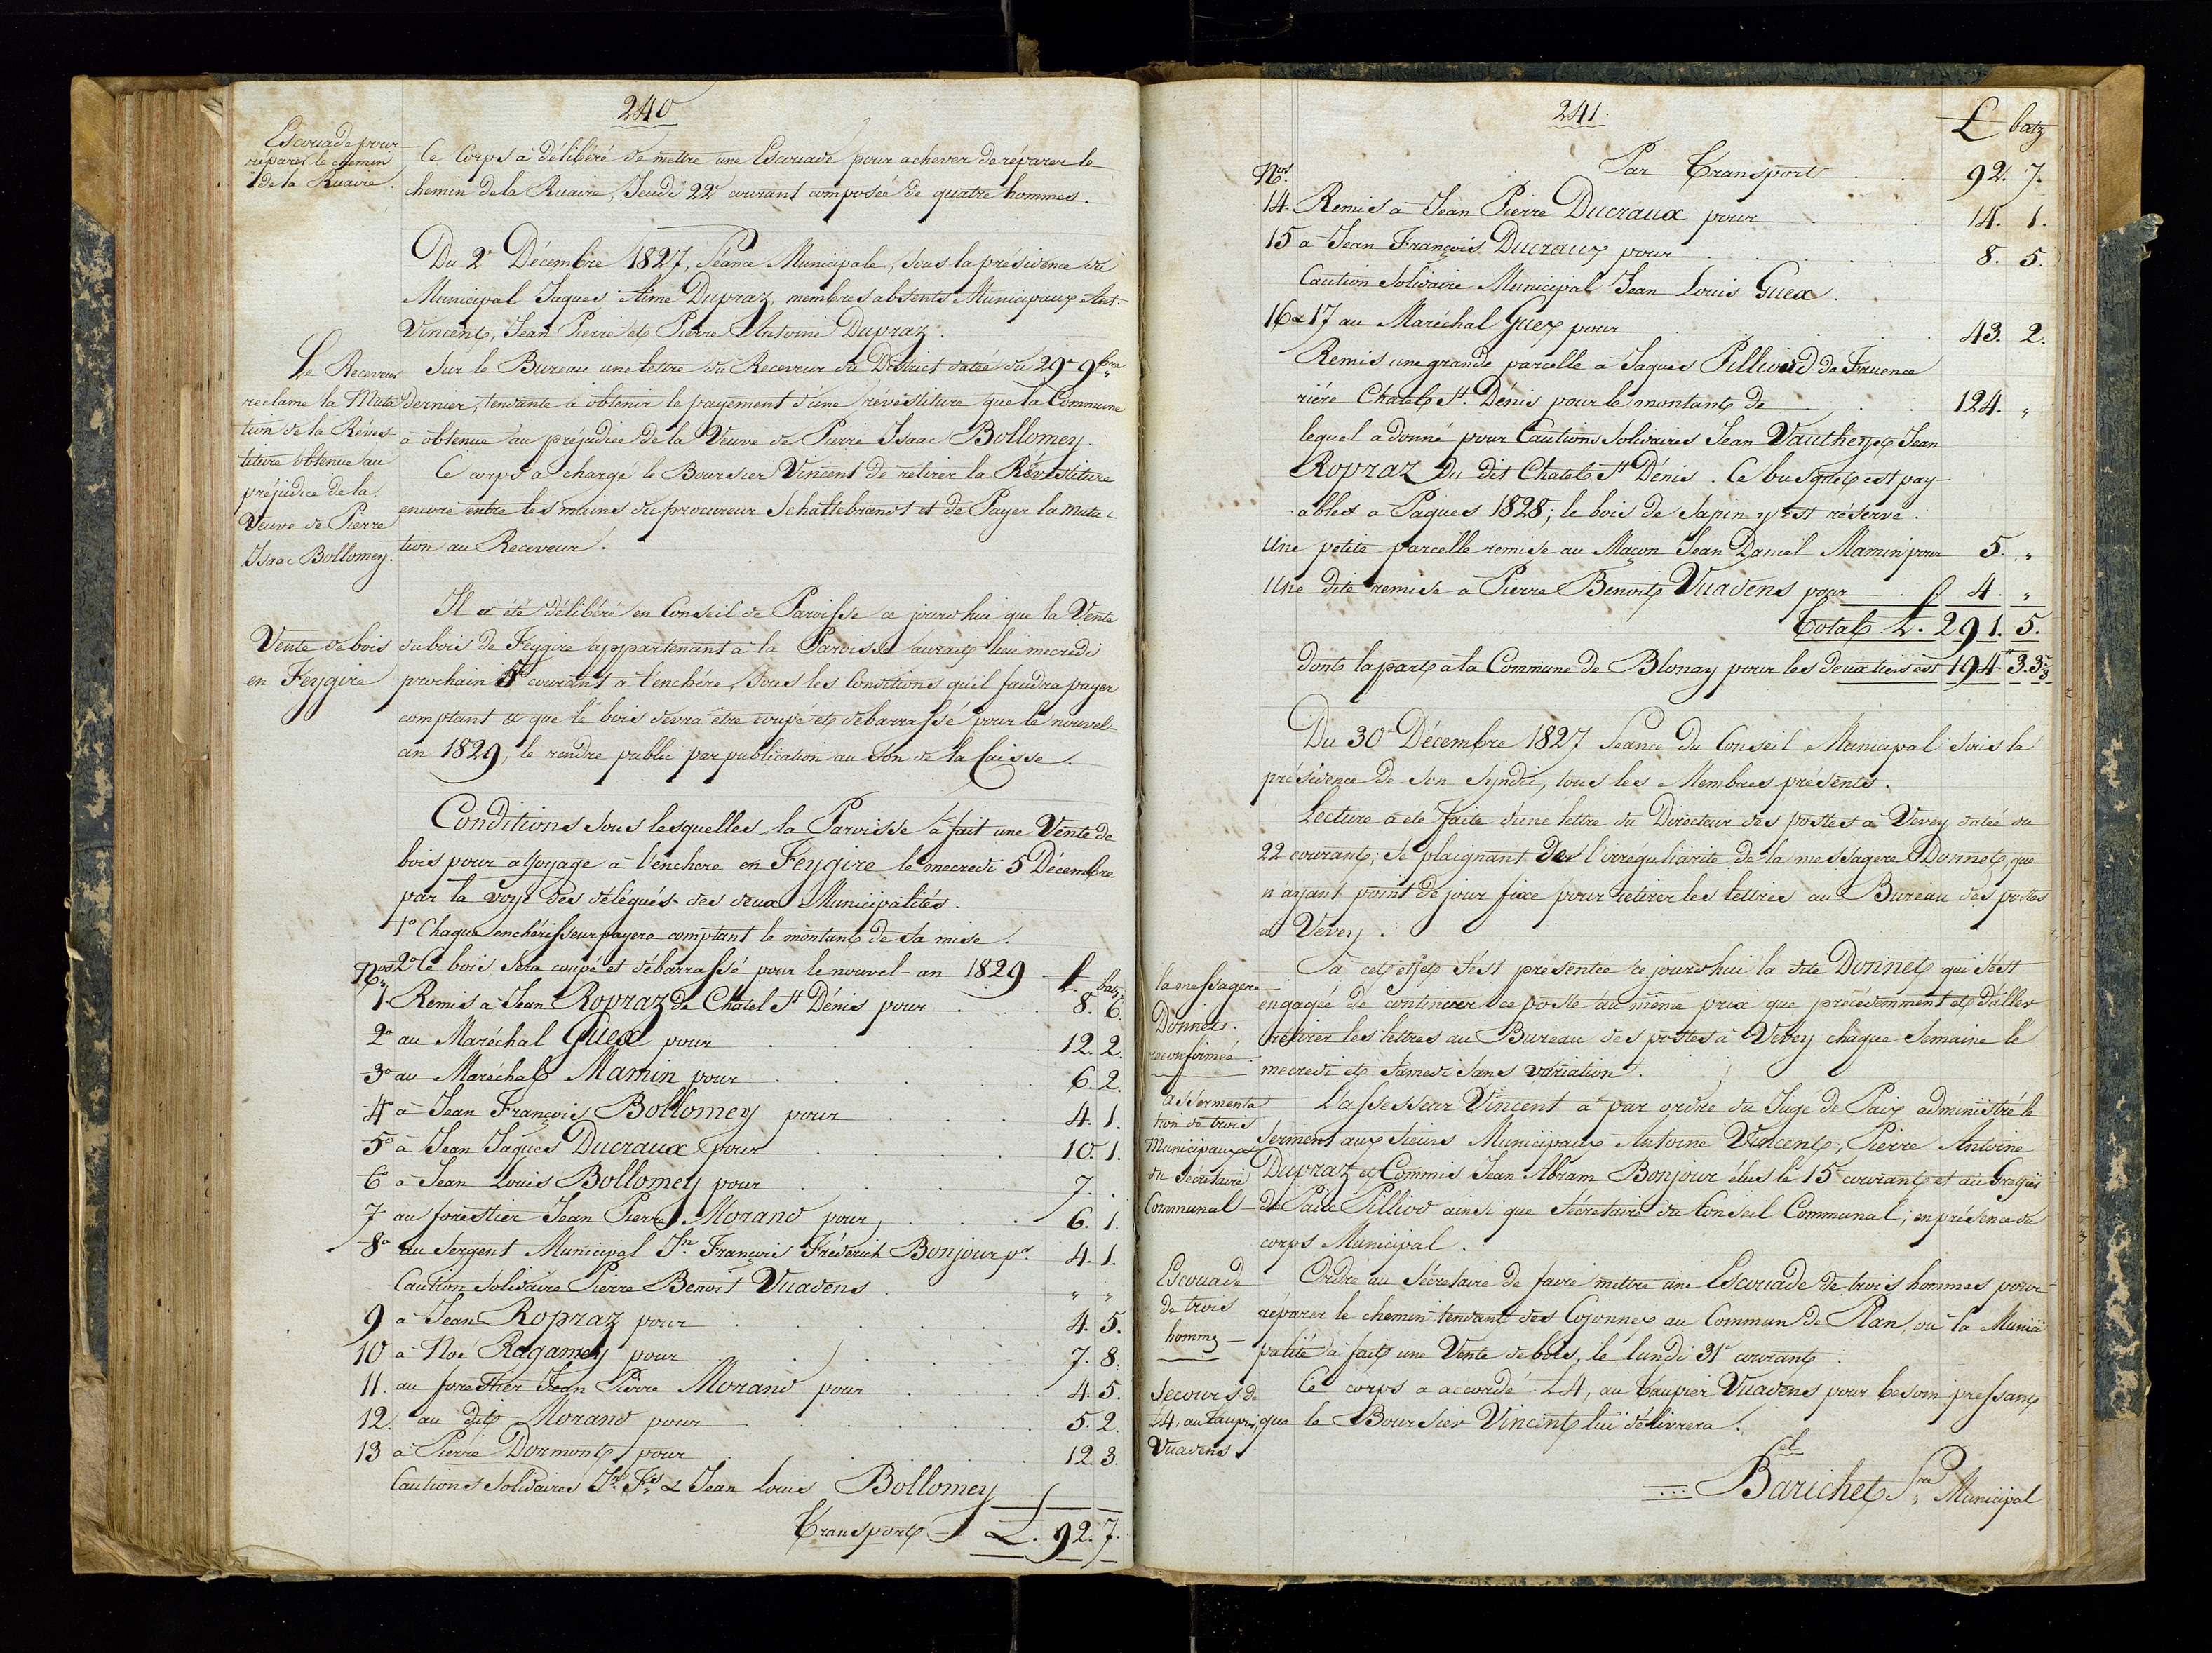 240
Escouade pour
réparer le chemin
de la Ruaire.
Le Corps a délibéré de mettre une Escouade pour achever de réparer le
chemin de la Ruaire, Jeudi 22e courant composée de quatre hommes.
Du 2e Décembre 1827, Séance Municipale, sous la présidence du
Municipal Jaques Aimé Dupraz, membres absents Municipaux Ant.
Vincent, Jean Pierre et Pierre Antoine Dupraz.
Le Receveur
reclame la Muta
tion de la Réves
titure obtenue au
préjudice de la
Veuve de Pierre
Isaac Bollomey.
Sur le Bureau une lettre du Receveur du District datée du 29e 9bre
dernier, tendante à obtenir le payement d'une révestiture que la Commune
a obtenue au préjudice de la Veuve de Pierre Isaac Bollomey.
Ce corps a chargé le Boursier Vincent de retirer la Révestiture
encore entre les mains du procureur Schattebrand et de Payer la muta-
tion au Receveur.
Vente de bois
en Feygire
Il a été délibéré en Conseil de Paroisse ce jourd'hui que la Vente
du bois de Feygire appartenant à la Paroisse aurait lieu mecredi
prochain 5e courant à l'enchére, sous les Conditions qu'il faudra payer
comptant & que le bois devra être coupé et débarrassé pour le nouvel-
an 1829, le rendre public par publication au Son de la Caisse.
Conditions sous lesquelles la Paroisse a fait une Vente de
bois pour affoyage à l'enchere en Feygire le mecredi 5 Décembre
par la voye des délégués des deux Municipalités.
1o Chaque enchérisseur payera comptant le montant de sa mise.
2o Ce bois sera coupé et débarrassé pour le nouvel-an 1829
Nos £. batz
1. Remis à Jean Ropraz de Châtel St Dénis pour 8. 6.
2o au Maréchal Guex pour 12. 2.
3o au Maréchal Mamin pour 6. 2.
4o à Jean François Bollomey pour 4. 1.
5o à Jean Jaques Ducraux pour 10. 1.
6o à Jean Louis Bollomey pour 7. .
7 au forestier Jean Pierre Morand pour 6. 1.
8o au Sergent Municipal Jn François Fréderich Bonjour pr. 4. 1.
Caution Solidaire Pierre Benoit Vuadens " "
9 à Jean Ropraz pour 4. 5.
10 à Noé Ragamey pour 7. 8.
11. au forestier Jean Pierre Morand pour 4. 5.
12. au dit Morand pour 5. 2.
13 à Pierre Dormont pour 12. 3.
Cautions Solidaires Jn. Fs. & Jean Louis Bollomey
Transport £. 92. 7.
241.
£ batz
Par Transport 92. 7.
Nos.
14. Remis à Jean Pierre Ducraux pour 14. 1.
15 à Jean François Ducraux pour 8. 5.
Caution Solidaire Municipal Jean Louis Guex.
16 & 17 au Maréchal Guex pour 43. 2.
Remis une grande parcelle à Jaques Pilliod de Fruence
riére Chatel St. Dénis pour le montant de 124. "
lequel a donné pour Cautions Solidaires Jean Vauthey et Jean
Ropraz du dit Chatel St Dénis. Ce est pay-
-ables à Paques 1828; le bois de Sapin y est réservé.
Une petite parcelle remise au Maçon Jean Daniel Mamin pour 5. "
Une dite remise à Pierre Benoit Vuadens pour 4. "
Total £. 291. 5.
dont la part à la Commune de Blonay pour les deux tiers est 194. 3. 3
Du 30e Décembre 1827 Séance du Conseil Municipal sous la
présidence de son Syndic, tous les Membres présents.
Lecture a été faite d'une lettre du Directeur des postes à Vevey datée du
22 courant; se plaignant de l'irrégularité de la messagere Donnet, que
n'ayant point de jour fixe pour retirer les lettres au Bureau des postes
à Vevey.
la messagere
Donnet.
reconfirmée
à cet effet s'est présentée ce jourd'hui la dite Donnet qui s'est
engagée de continuer ce poste au même prix que précédemment et d'aller
retirer les lettres au Bureau des postes à Vevey chaque Semaine le
mecredi et Samedi Sans variation.
assermenta
tion de trois
Municipaux et
du Sécrétaire
Communal
L'assesseur Vincent a par ordre du Juge de Paix administré le
serment aux Sieurs Municipaux Antoine Vincent, Pierre Antoine
Dupraz et Commis Jean Abram Bonjour élus le 15e courant et au Greffier
de Paix Pilliod ainsi que Sécretaire du Conseil Communal, en présence du
corps Municipal.
Escouade
de trois
hommes
Ordre au Sécretaire de faire mettre une Escouade de trois hommes pour
réparer le chemin tendant des Cojonnex au Commun de Plan, où la Munici
palité a fait une Vente de bois, le lundi 31e courant.
Secours de
£4, au Taupier
Vuadens
Ce corps a accordé £4, au Taupier Vuadens pour besoin pressant
que le Boursier Vincent lui délivrera.
Barichet Sre Municipal